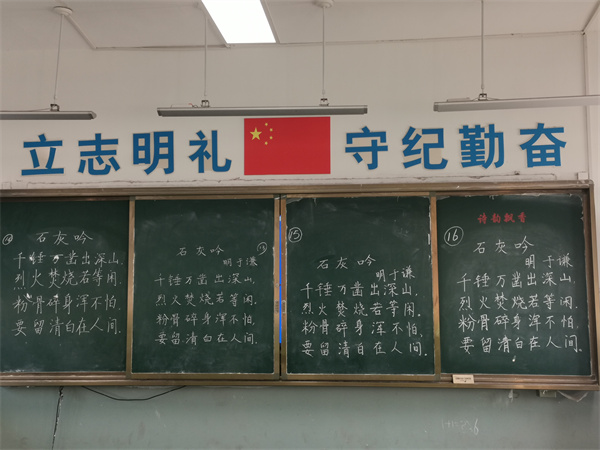 立志明礼 守纪勤奋
石灰吟
千锤万凿出深山,
烈火焚烧若等闲.
粉骨碎身浑不怕
要留清白在人间.
石灰吟
明于谦
千锤万凿出深山,
烈火焚烧若等闲.
粉骨碎身浑不怕
要留清白在人间.
15
石灰吟
明于谦
千锤万凿出深山,
烈火焚烧若等闲.
粉骨碎身浑不怕,
要留清白在人间.
诗韵飘香
16
石灰吟
明于谦
千锤万凿出深山,
烈火焚烧若等闲.
粉骨碎身浑不怕,
要留清白在人间.